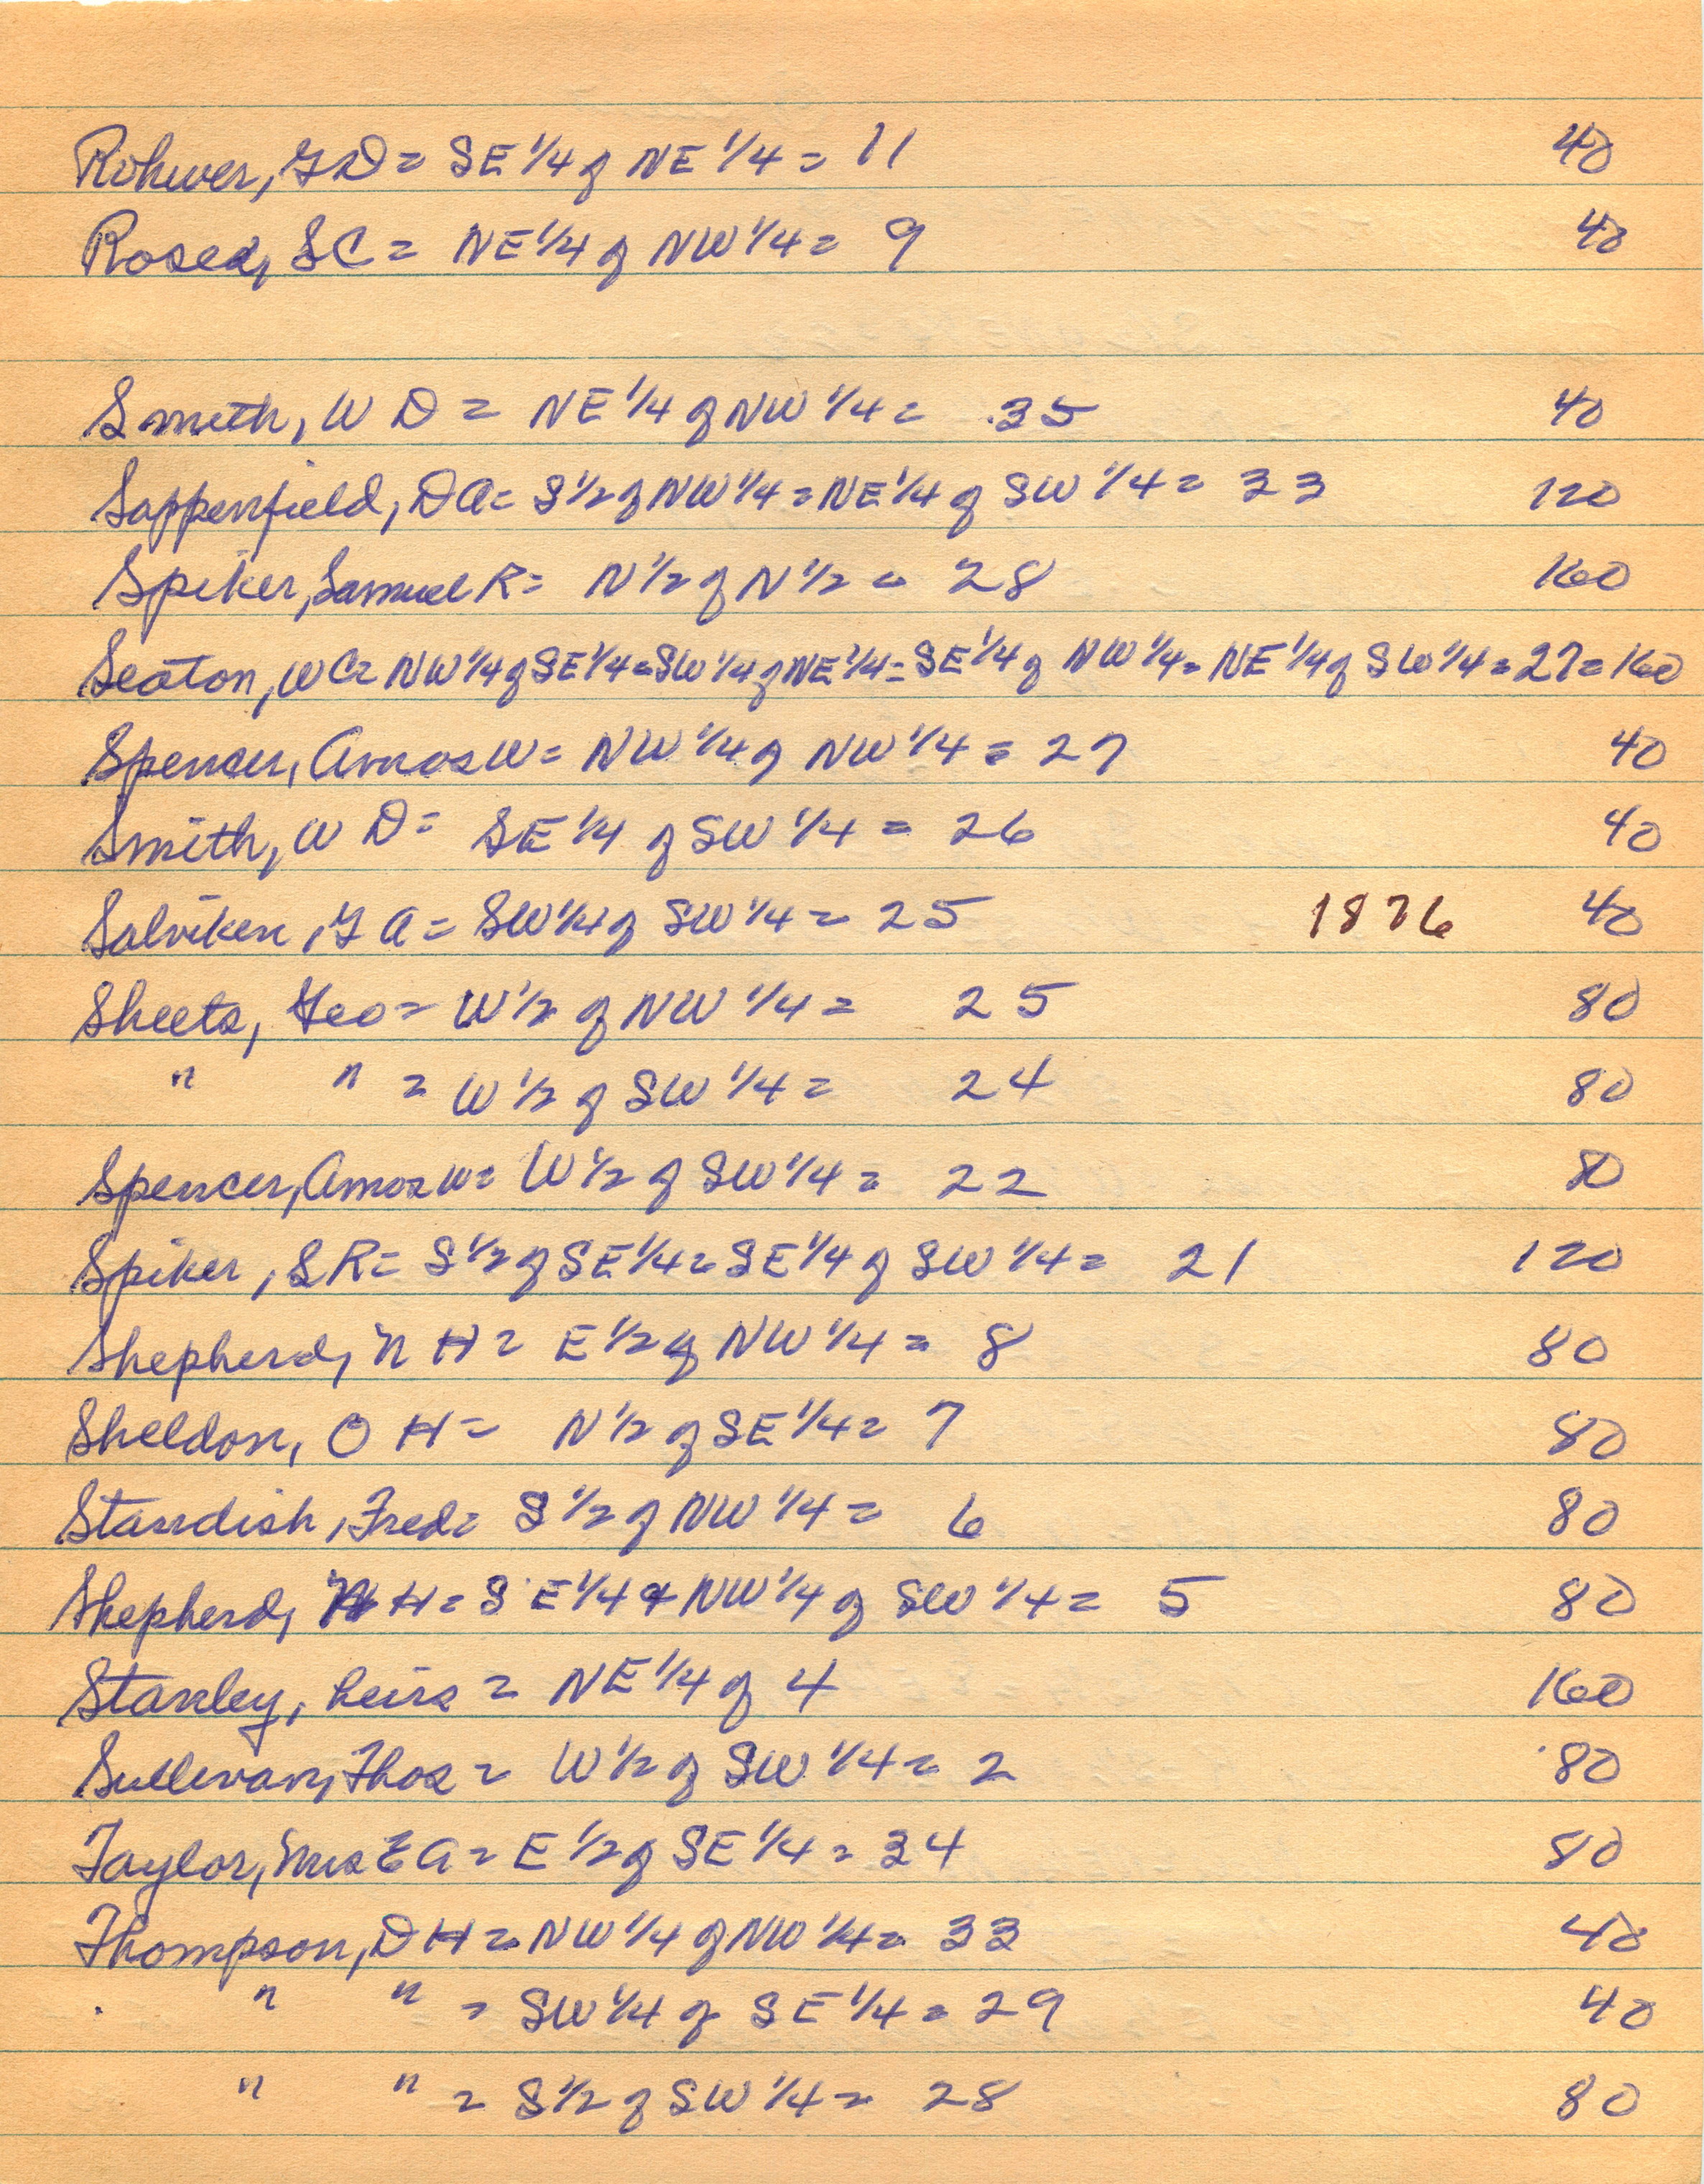 Rohwer, GD = SE 1/4 of NE 1/4 = 11 40
Rosed, SC = NE 1/4 of NW 1/4 = 9 40
Smith, W D = NE 1/4 of NW 1/4 = 35 40
Sappenfield, DA = S 1/2 of NW 1/4 = NE 1/4 of SW 1/4 = 33 120
Spiker, Samuel R = N 1/2 of N 1/2 = 28 160
Seaton, WC = NW 1/4 of SE 1/4 = SW 1/4 of NE 1/4 = SE 1/4 of NW 1/4 = NE 1/4 of SW 1/4 = 27 = 160
Spencer, Amos W = NW 1/4 of NW 1/4 = 27 40
Smith, W D = SE 1/4 of SW 1/4 = 26 40
Salviken, G A = SW 1/4 of SW 1/4 = 25 1876 40
Sheets, Geo = W 1/2 of NW 1/4 = 25 80
" " = W 1/2 of SW 1/4 = 24 80
Spencer, Amos W = W 1/2 of SW 1/4 = 22 80
Spiker, SR = S 1/2 of SE 1/4 = SE 1/4 of SW 1/4 = 21 120
Shepherd, N H = E 1/2 of NW 1/4 = 8 80
Sheldon, O H = N 1/2 of SE 1/4 = 7 80
Standish, Fred = S 1/2 of NW 1/4 = 6 80
Shepherd, N H = S E 1/4 + NW 1/4 of SW 1/4 = 5 80
Stanley, heirs = NE 1/4 of 4 160
Sullivan, Thos = W 1/2 of SW 1/4 = 2 80
Taylor, Mrs E A = E 1/2 of SE 1/4 = 34 80
Thompson, D H = NW 1/4 of NW 1/4 = 33 40
" " = SW 1/4 of SE 1/4 = 29 40
" " = S 1/2 of SW 1/4 = 28 80